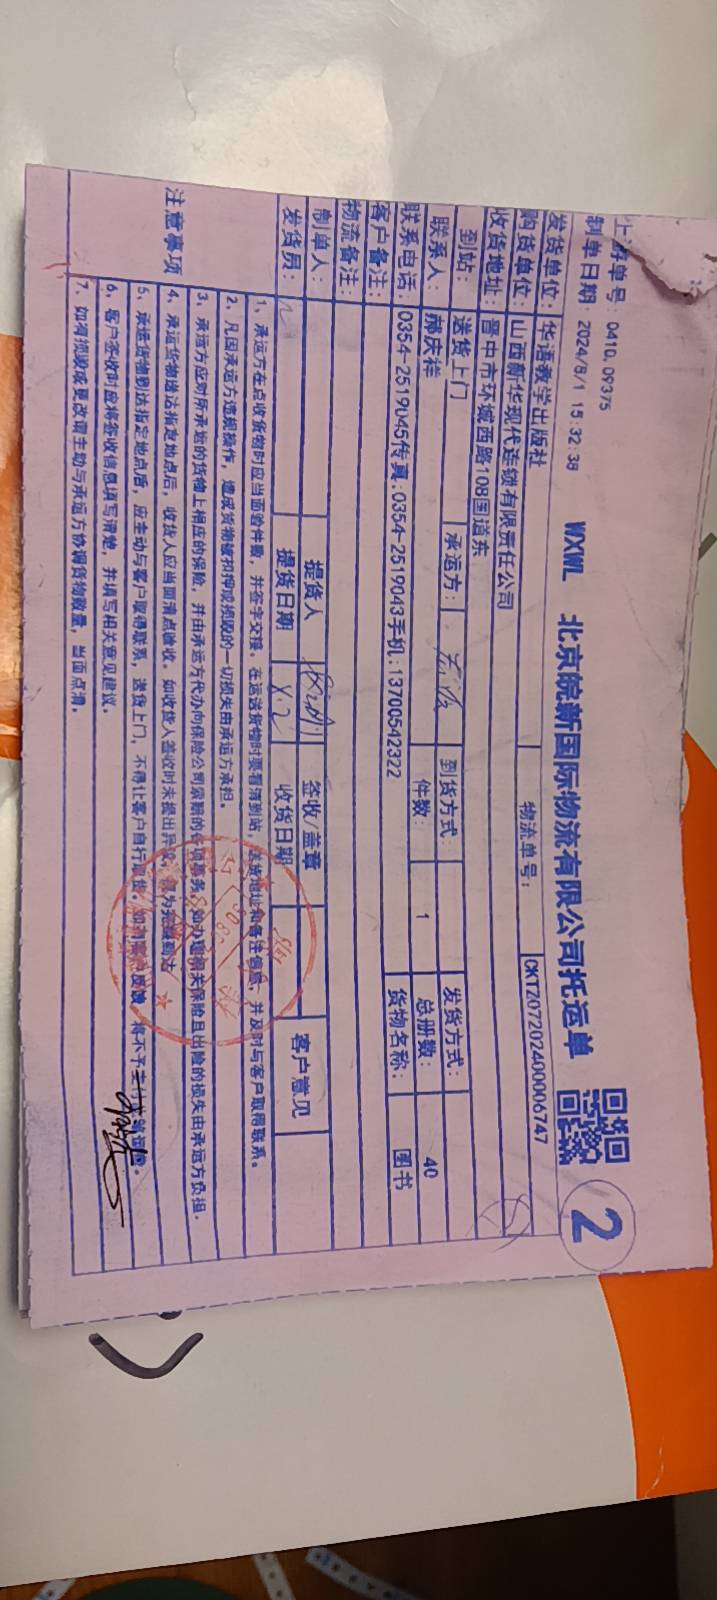 单号：0410.09375
制单日期：2024/8/1 15:32:38
WXWL 北京皖新国际物流有限公司托运单
2
发货单位：华语教学出版社
购货单位：山西新华现代连锁有限责任公司 物流单号：CKT207202400006747
收货地址：晋中市环城西路108国道东
到站：送货上门 承运方： 到货方式： 发货方式：
联系人：郝庆祥 件数：1 总册数：40
联系电话：0354-2519045传真:0354-2519043手机:13700542322 货物名称：图书
客户备注：
物流备注：
制单人： 提货人 签收/盖章 客户意见
发货员： 提货日期 8.2 收货日期
注意事项
1、承运方在点收货物时应当面验件数，并签字交接，在运送货物时要看清到站，送货地址和备注信息，并及时与客户取得联系。
2、凡因承运方违规操作，造成货物被扣押或损毁的一切损失由承运方承担。
3、承运方应对所承运的货物上相应的保险，并由承运方代办向保险公司索赔的各项事务，如办理相关保险且出险的损失由承运方负担。
4、承运货物送达指定地点后，收货人应当面清点验收，如收货人签收时未提出异议，视为完整到达
5、承运货物到达指定地点后，应主动与客户取得联系，送货上门，不得让客户自行取货，如有客户反馈，将不予支付此笔运费。
6、客户签收时应将签收信息填写清楚，并填写相关意见建议。
7、如有损毁或更改请主动与承运方协调货物数量，当面点清。